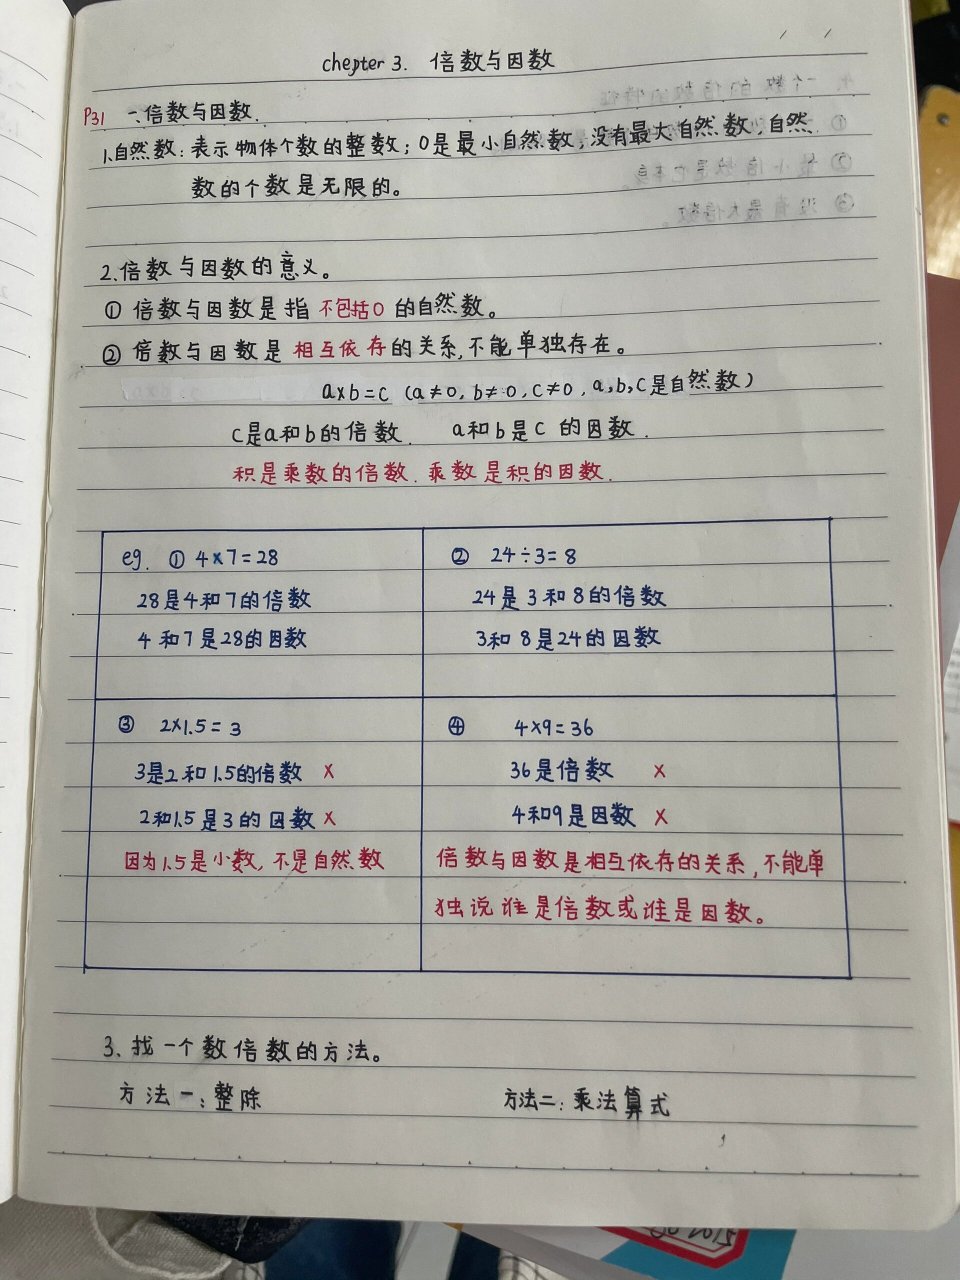 chepter 3. 倍数与因数
P31 一、倍数与因数.
1.自然数：表示物体个数的整数；0是最小自然数，没有最大自然数，自然
数的个数是无限的。
2.倍数与因数的意义。
① 倍数与因数是指 不包括0 的自然数。
② 倍数与因数是 相互依存的关系,不能单独存在。
a×b=c (a≠0, b≠0, c≠0, a,b,c是自然数)
c是a和b的倍数. a和b是c的因数.
积是乘数的倍数. 乘数是积的因数.
eg. ① 4×7=28
28是4和7的倍数
4和7是28的因数
② 24÷3=8
24是3和8的倍数
3和8是24的因数
③ 2×1.5=3
3是2和1.5的倍数 ×
2和1.5是3的因数 ×
因为1.5是小数, 不是自然数
④ 4×9=36
36是倍数 ×
4和9是因数 ×
倍数与因数是相互依存的关系,不能单
独说谁是倍数或谁是因数。
3、找一个数倍数的方法。
方法一：整除 方法二：乘法算式